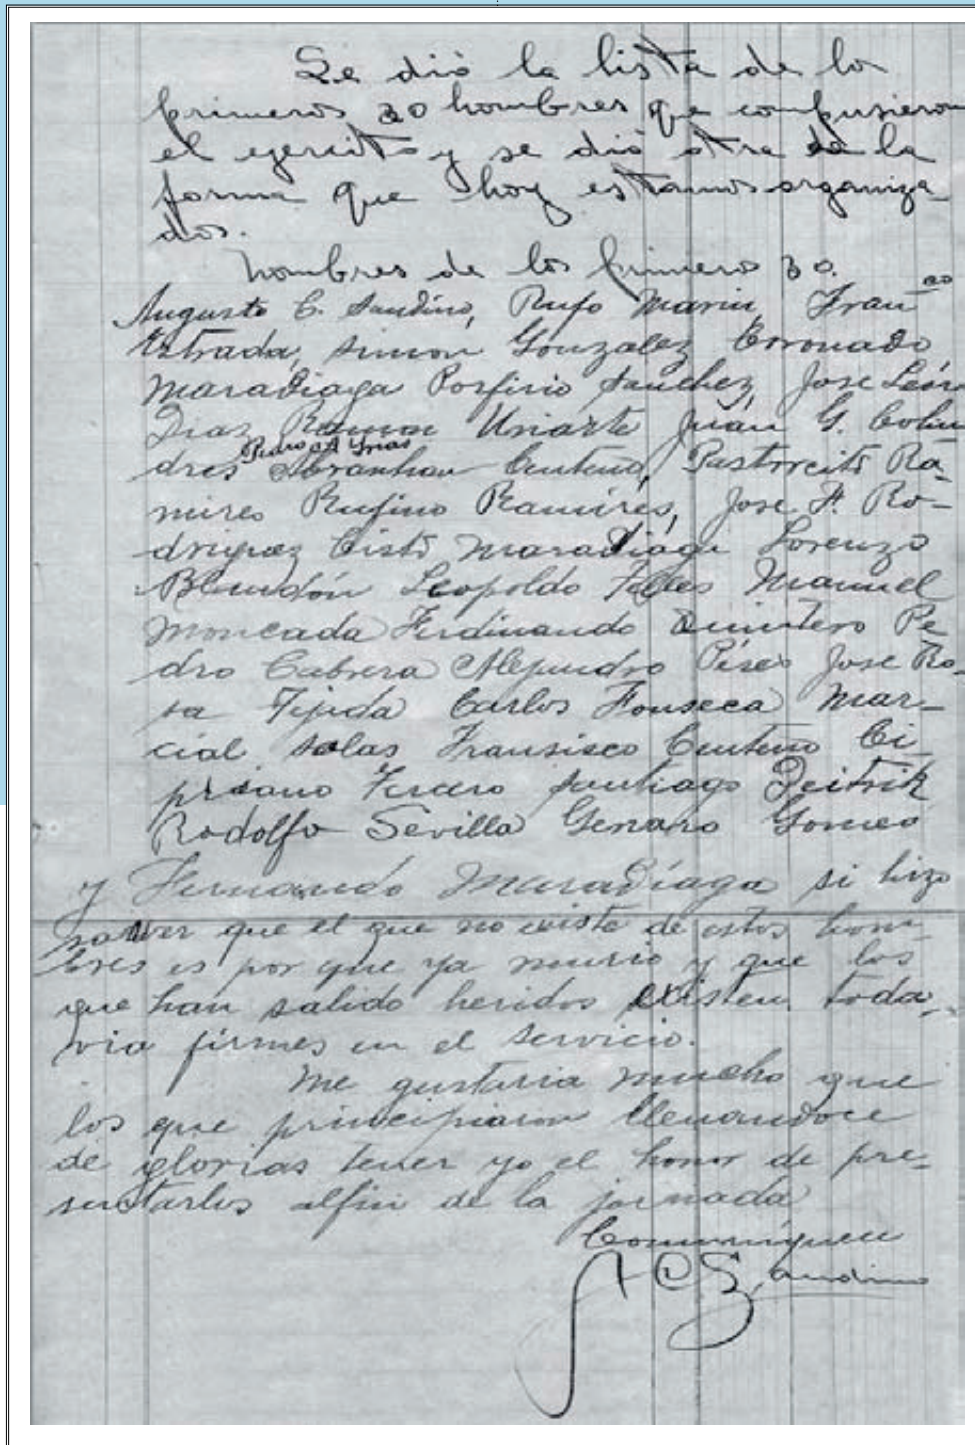 Se dió la lista de los
primeros 30 hombres que compusieron
el ejercito y se dió otra de la
forma que hoy estamos organiza-
dos.
Nombres de los primero 30.
Augusto C. Sandino, Rufo Marin, Fran co
Estrada, Simon Gonzalez Coronado
Maradiaga Porfirio Sanchez, Jose León
Diaz Ramon Uriarte Juán G. Colin
Pedro A Yrias
dres Abranhan Centeno, Pastorcito Ra-
mires Rufino Ramires, Jose F. Ro-
driguez Cisto Maradiaga Lorenzo
Blandón Leopoldo Telles Manuel
Moncada Ferdinando Quintero Pe
dro Cabrera Alejandro Péres Jose Ro-
sa Tijida Carlos Fonseca Mar-
cial Salas Fransisco Centeno Ci-
priano Tercero Santiago Deitrik
Rodolfo Sevilla Genaro Gomes
y Fernando Maradíaga si hizo
saver que el que no existe de estos hom-
bres es por que ya murio y que los
que han salido heridos existen toda-
via firmes en el servicio.
Me gustaria mucho que
los que principiaron llenandoce
de glorias tener yo el honor de pre-
sentarlos alfin de la jornada
Comuníquese
A C Sandino